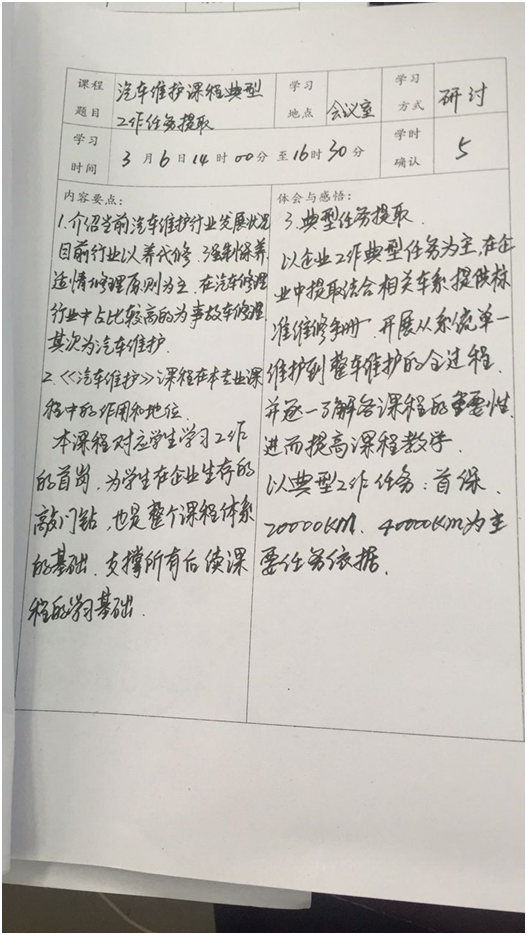 课程题目 汽车维护课程典型工作任务提取 学习地点 会议室 学习方式 研讨
学习时间 3月6日14时00分至16时30分 学时确认 5
内容要点：
1.介绍当前汽车维护行业发展状况
目前行业以养代修、强制保养、
适情修理原则为主．在汽车修理
行业中占比较高的为事故车修理
其次为汽车维护．
2.《汽车维护》课程在本专业课
程中的作用和地位．
本课程对应学生学习工作
的首岗．为学生在企业生存的
敲门砖，也是整个课程体系
的基础．支撑所有后续课
程的学习基础．
体会与感悟：
3.典型任务提取．
以企业工作典型任务为主，在企
业中提取结合相关车系提供标
准维修手册．开展从系统单一
维护到整车维护的全过程．
并逐一了解各课程的重要性．
进而提高课程教学．
以典型工作任务：首保．
20000KM、40000KM为主
要任务依据．